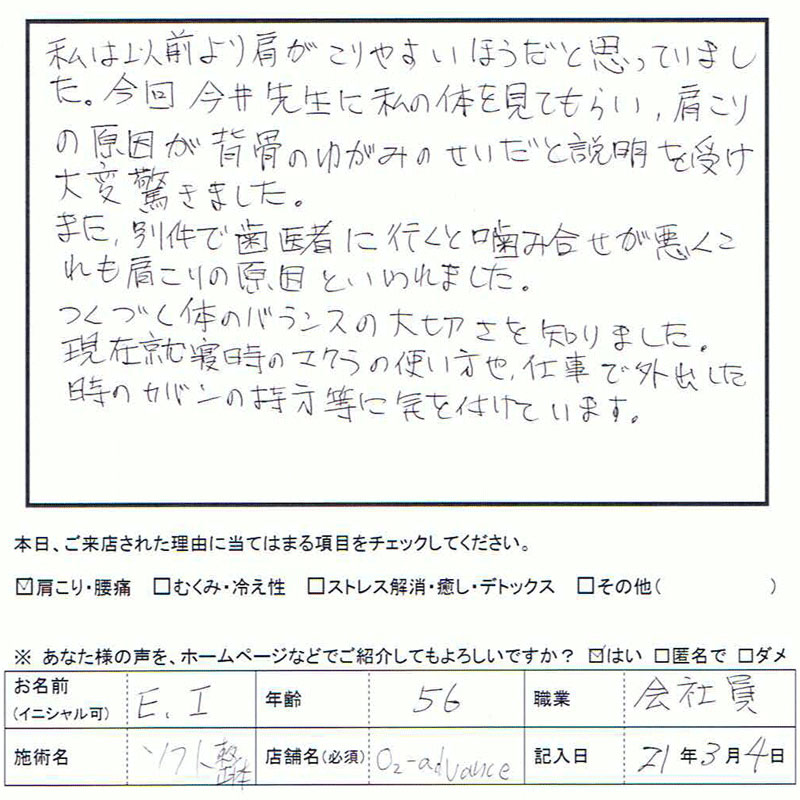 私は以前より肩がこりやすいほうだと思っていまし
た。今回今井先生に私の体を見てもらい、肩こり
の原因が背骨のゆがみのせいだと説明を受け
大変驚きました。
また、別件で歯医者に行くと噛み合せが悪くこ
れも肩こりの原因といわれました。
つくづく体のバランスの大切さを知りました。
現在就寝時のマクラの使い方や、仕事で外出した
時のカバンの持方等に気を付けています。
本日、ご来店された理由に当てはまる項目をチェックしてください。
☑肩こり・腰痛 □むくみ・冷え性 □ストレス解消・癒し・デトックス □その他( )
※ あなた様の声を、ホームページなどでご紹介してもよろしいですか? ☑はい □匿名で □ダメ
お名前 (イニシャル可) E. I 年齢 56 職業 会社員
施術名 ソフト整体 店舗名(必須) O2-advance 記入日 21年3月4日